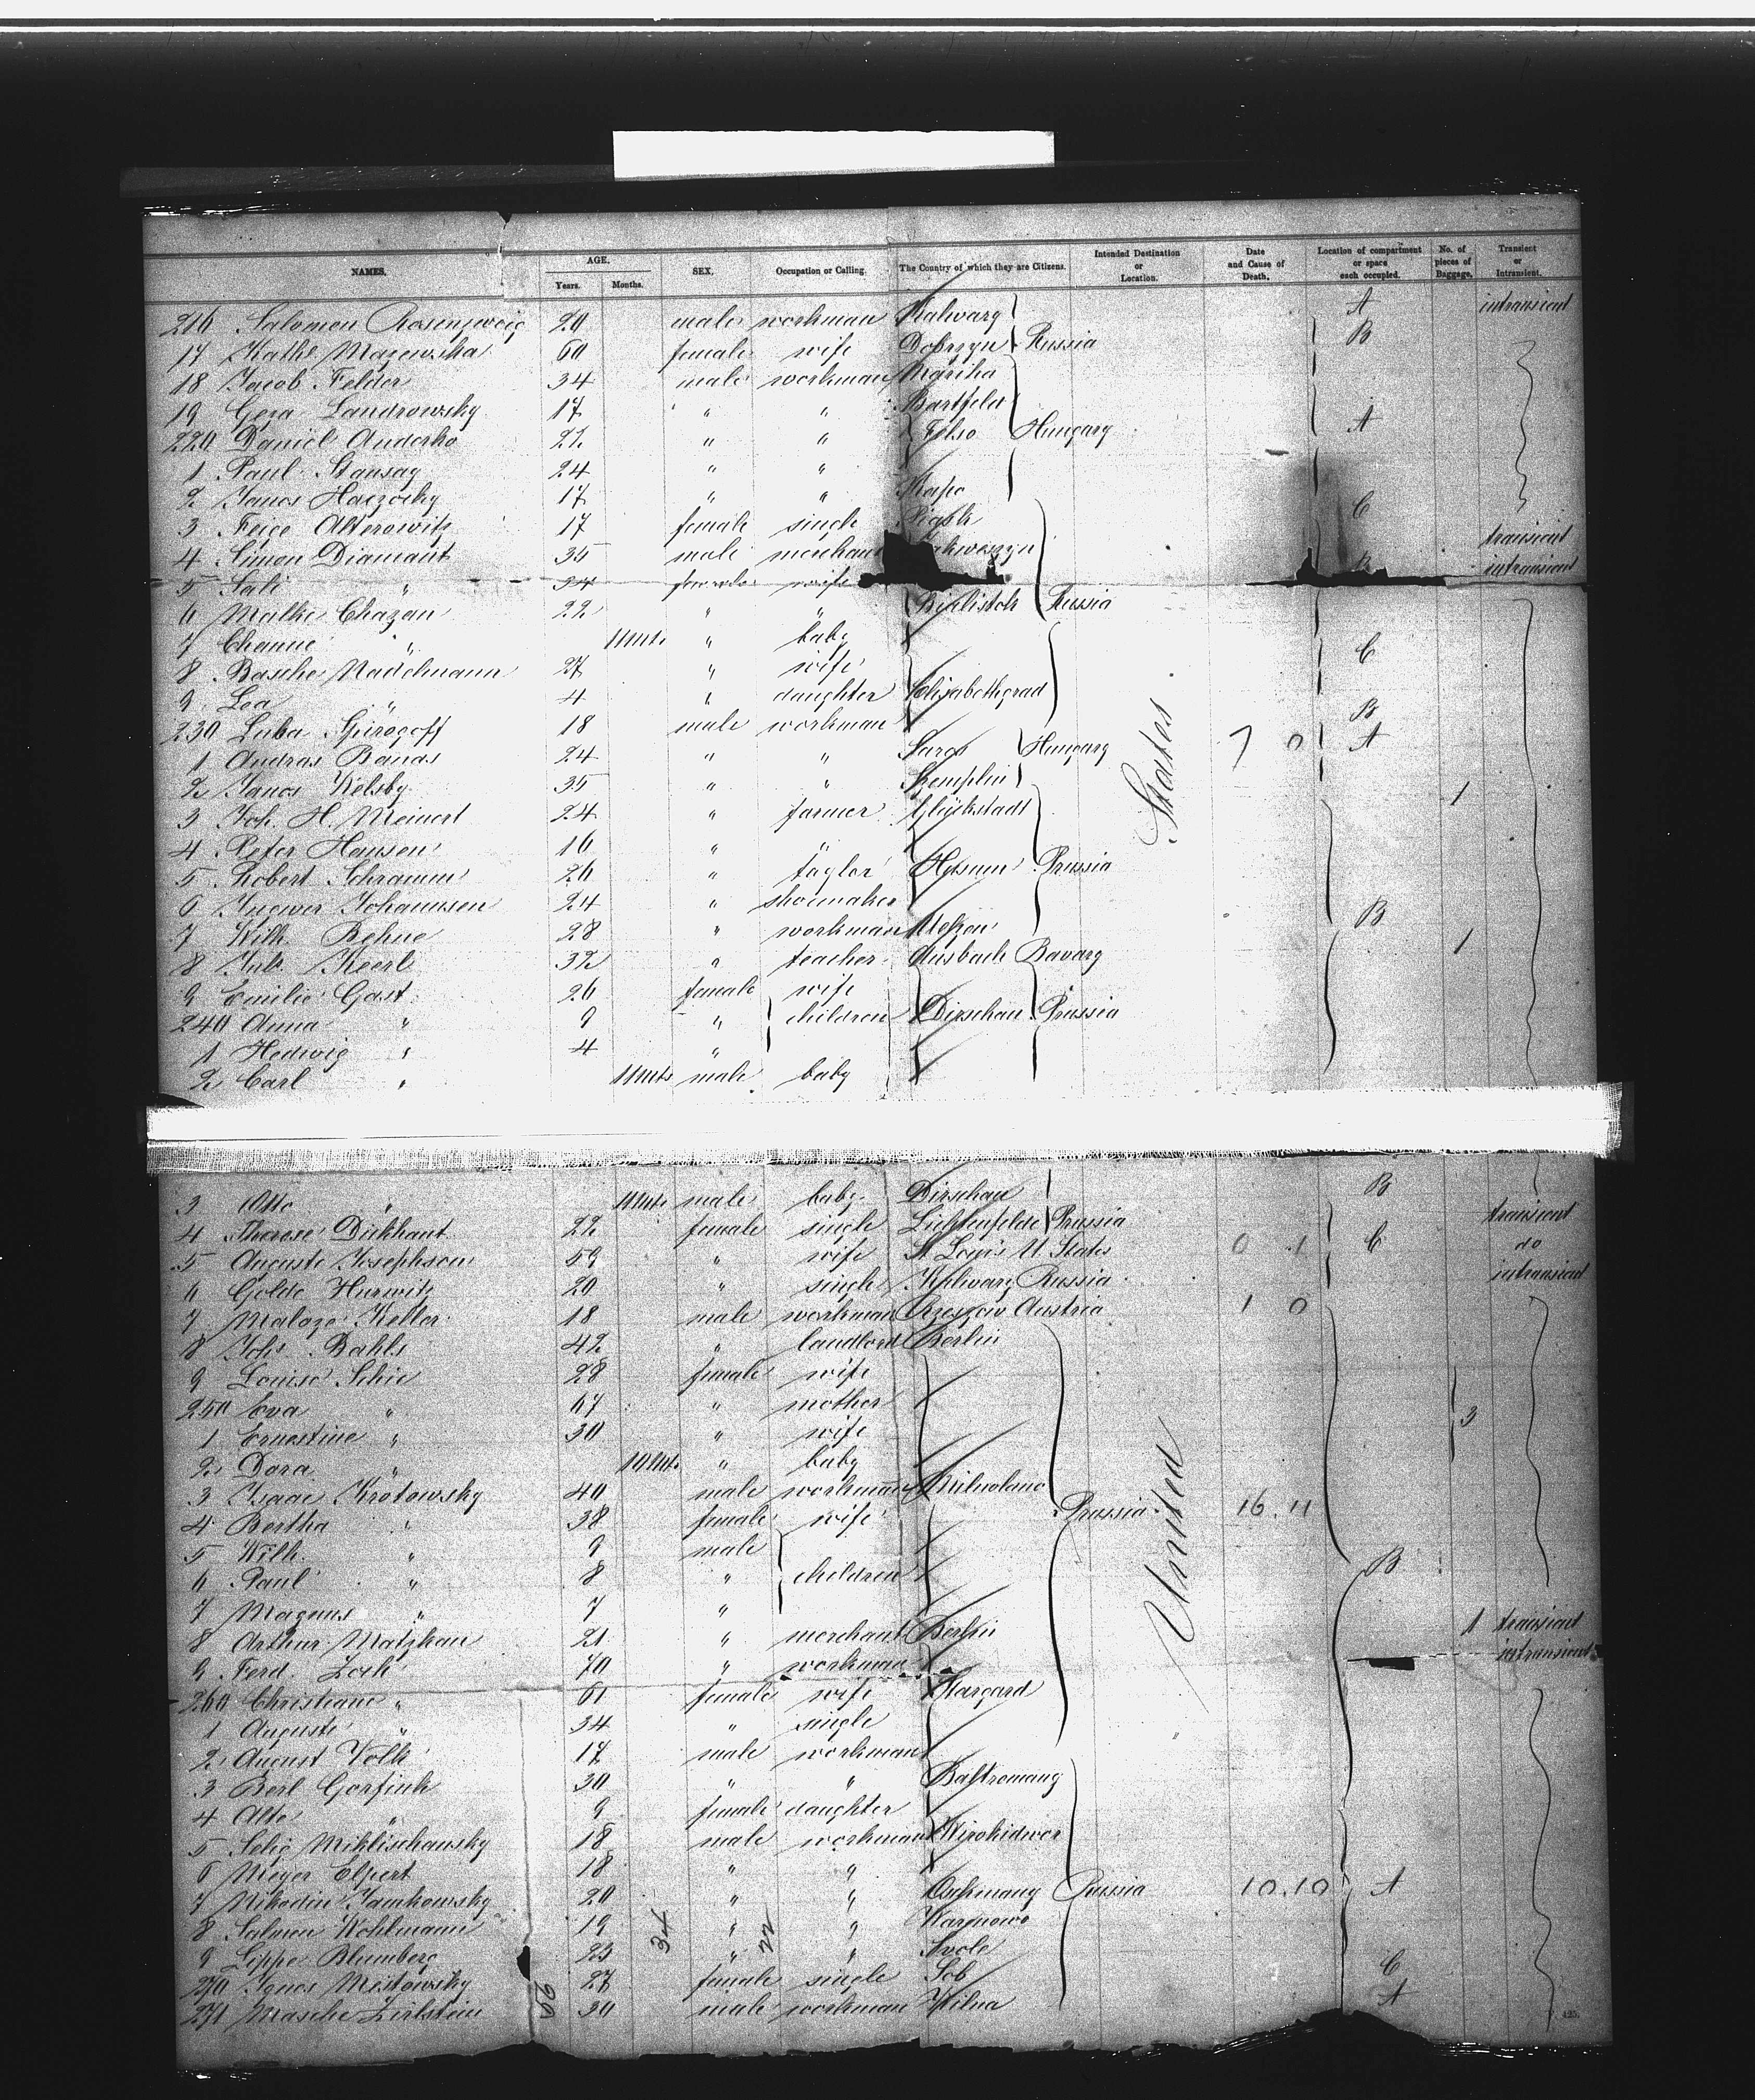 NAMES. AGE. Years. Months. SEX. Occupation or Calling. The Country of which they are Citizens. Intended Destination or Location. Date and Cause of Death. Location of compartment or space each occupied. No. of pieces of Baggage. Transient or Intransient.
216 Salomon Rosenzweig 20 male workman Kalwary A intransient
17 Kathe Mazewska 60 female wife Dobrzyn Russia B
18 Jacob Felder 34 male workman
19 Geza Landrowsky 17 " " Bartfeld
220 Daniel Anderko 22 " " Felso Hungary A
1 Paul Stansay 24 " "
2 Janos Haczocky 17 " "
3 Feige Alterowitz 17 female single C transient
4 Simon Diamant 35 male merchant intransient
5 Sali " 34 female wife B
6 Malke Chazan 22 " " Bialistok Russia
7 Channe " 11 Mts " baby
8 Basche Nadelmann 27 " wife C
9 Lea " 4 " daughter Elisabethgrad
230 Luba Spirogoff 18 male workman B
1 Andras Banas 24 " " Saros Hungary 7 0 A
2 Janos Kelsby 35 " " Zemplin
3 Joh. H. Meinert 24 " farmer Glückstadt 1
4 Peter Hansen 16 " "
5 Robert Schramm 26 " taylor Husum Prussia
6 Ingwer Johannsen 24 " shoemaker
7 Wilh. Behne 28 " workman Uelzen B
8 Juls. Keerl 32 " teacher Ansbach Bavary 1
9 Emilie Gast 26 female wife
240 Anna " 9 " children Dirschau Prussia
1 Hedwig " 4 "
2 Carl " 11 Mts male baby
States
3 Otto " 11 Mts male baby Dirschau B
4 Therese Dickhaut 22 female single Lichtenfelde Prussia transient
5 Auguste Josephson 59 " wife St Louis U States 0 1 C do
6 Golde Hurwitz 20 " single Kalwary Russia intransient
7 Keller 18 male workman Rzeszow Austria 1 0
8 Johs. Bahls 42 " landlord Berlin
9 Louise Schie 28 female wife
250 Eva " 67 " mother
1 Ernestine " 30 " wife 3
2 Dora " 10 Mts. " baby
3 Isaac Krotowsky 40 male workman
4 Bertha " 38 female wife Prussia 16. 11
5 Wilh. " 9 male
6 Paul " 8 " children B
7 Magnus " 7 "
8 Arthur Matzkau 21 " merchant Berlin 1 transient
9 Ferd. Zoch 70 " workman intransient
260 Christiane " 61 female wife Stargard
1 Auguste " 34 " single
2 August Volk 17 male workman
3 Berl Gorfink 30 " "
4 Alte " 9 female daughter
5 Selig Miklischansky 18 male workman
6 Meyer Elpert 18 " "
7 Nikodim Jankowsky 20 " " Oschmany Russia 10. 10 A
8 Salmon Wohlmann 19 " " Karpowo
9 Lippe Blumberg 23 " "
270 Ignes 27 female single Sob C
271 Masche Zirlstein 30 male workman Wilna A
United
34
22